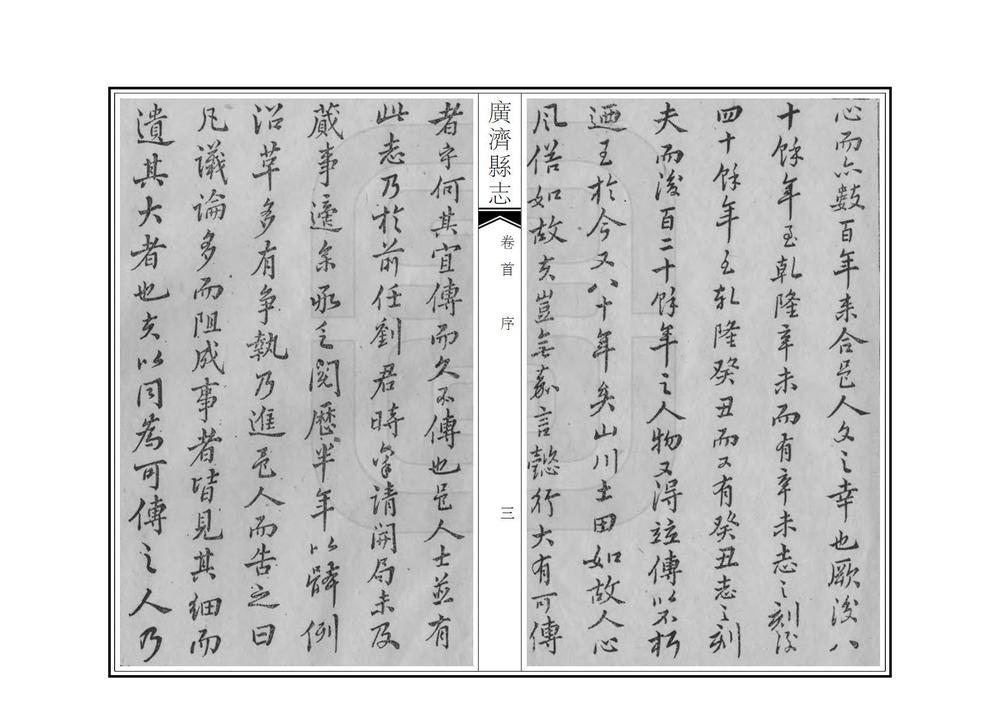 心而亦數百年来合邑人文之幸也厥後八
十餘年至乾隆辛未而有辛未志之刻後
四十餘年至乾隆癸丑而又有癸丑志之刻
夫而後百二十餘年之人物又得竝傳以不朽
廼至於今又八十年矣山川土田如故人心
風俗如故夫豈無嘉言懿行大有可傳
廣濟縣志
卷首
序
三
者乎何其宜傳而久不傳也邑人士並有
此志乃於前任劉君時稟請開局未及
蕆事適余承乏閱歷半年以體例
沿革多有争執乃進邑人而告之曰
凡議論多而阻成事者皆見其細而
遺其大者也夫以同為可傳之人乃